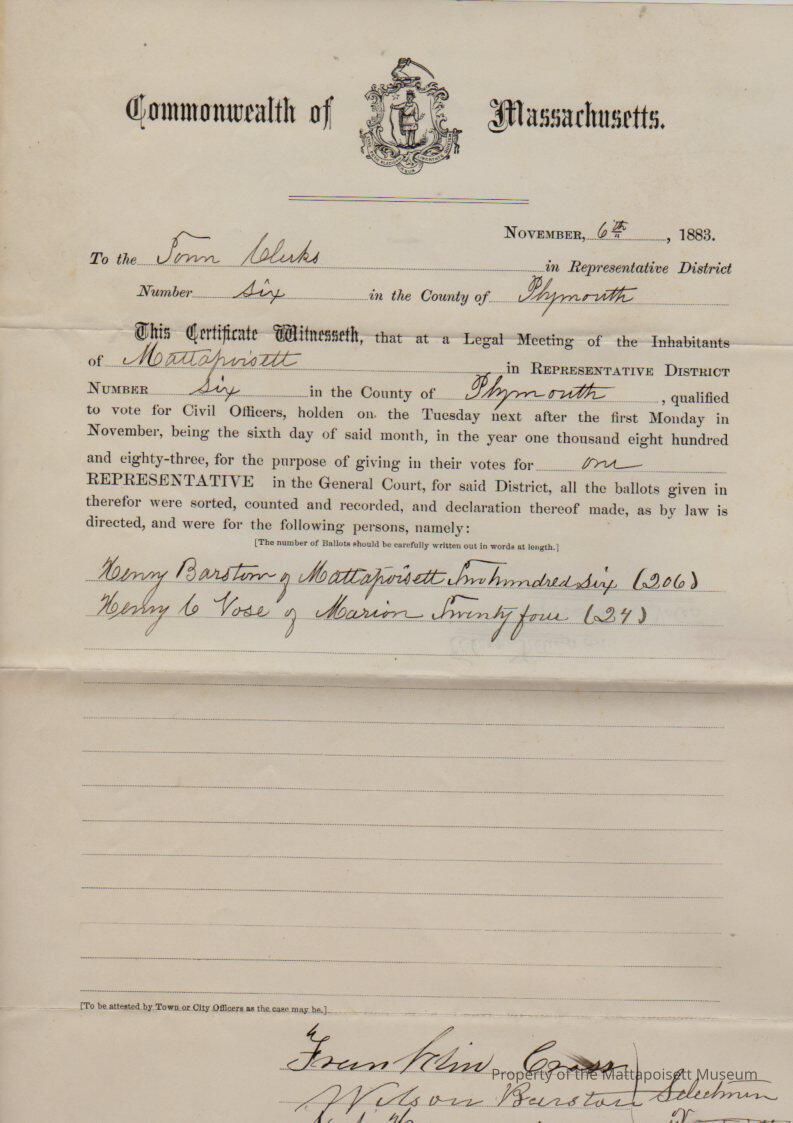 Commonwealth of Massachusetts.
NOVEMBER, 6th, 1883.
To the Town Clerks in Representative District
Number six in the County of Plymouth
This Certificate Witnesseth, that at a Legal Meeting of the Inhabitants
of Mattapoisett in REPRESENTATIVE DISTRICT
NUMBER six in the County of Plymouth, qualified
to vote for Civil Officers, holden on the Tuesday next after the first Monday in
November, being the sixth day of said month, in the year one thousand eight hundred
and eighty-three, for the purpose of giving in their votes for one
REPRESENTATIVE in the General Court, for said District, all the ballots given in
therefor were sorted, counted and recorded, and declaration thereof made, as by law is
directed, and were for the following persons, namely:
[The number of Ballots should be carefully written out in words at length.]
Henry Barstow of Mattapoisett Two hundred six (206)
Henry C Vose of Marion Twenty four (24)
[To be attested by Town or City Officers as the case may be.]
Franklin Cross
Property of the Mattapoisett Museum
Wilson Barstow Selectmen